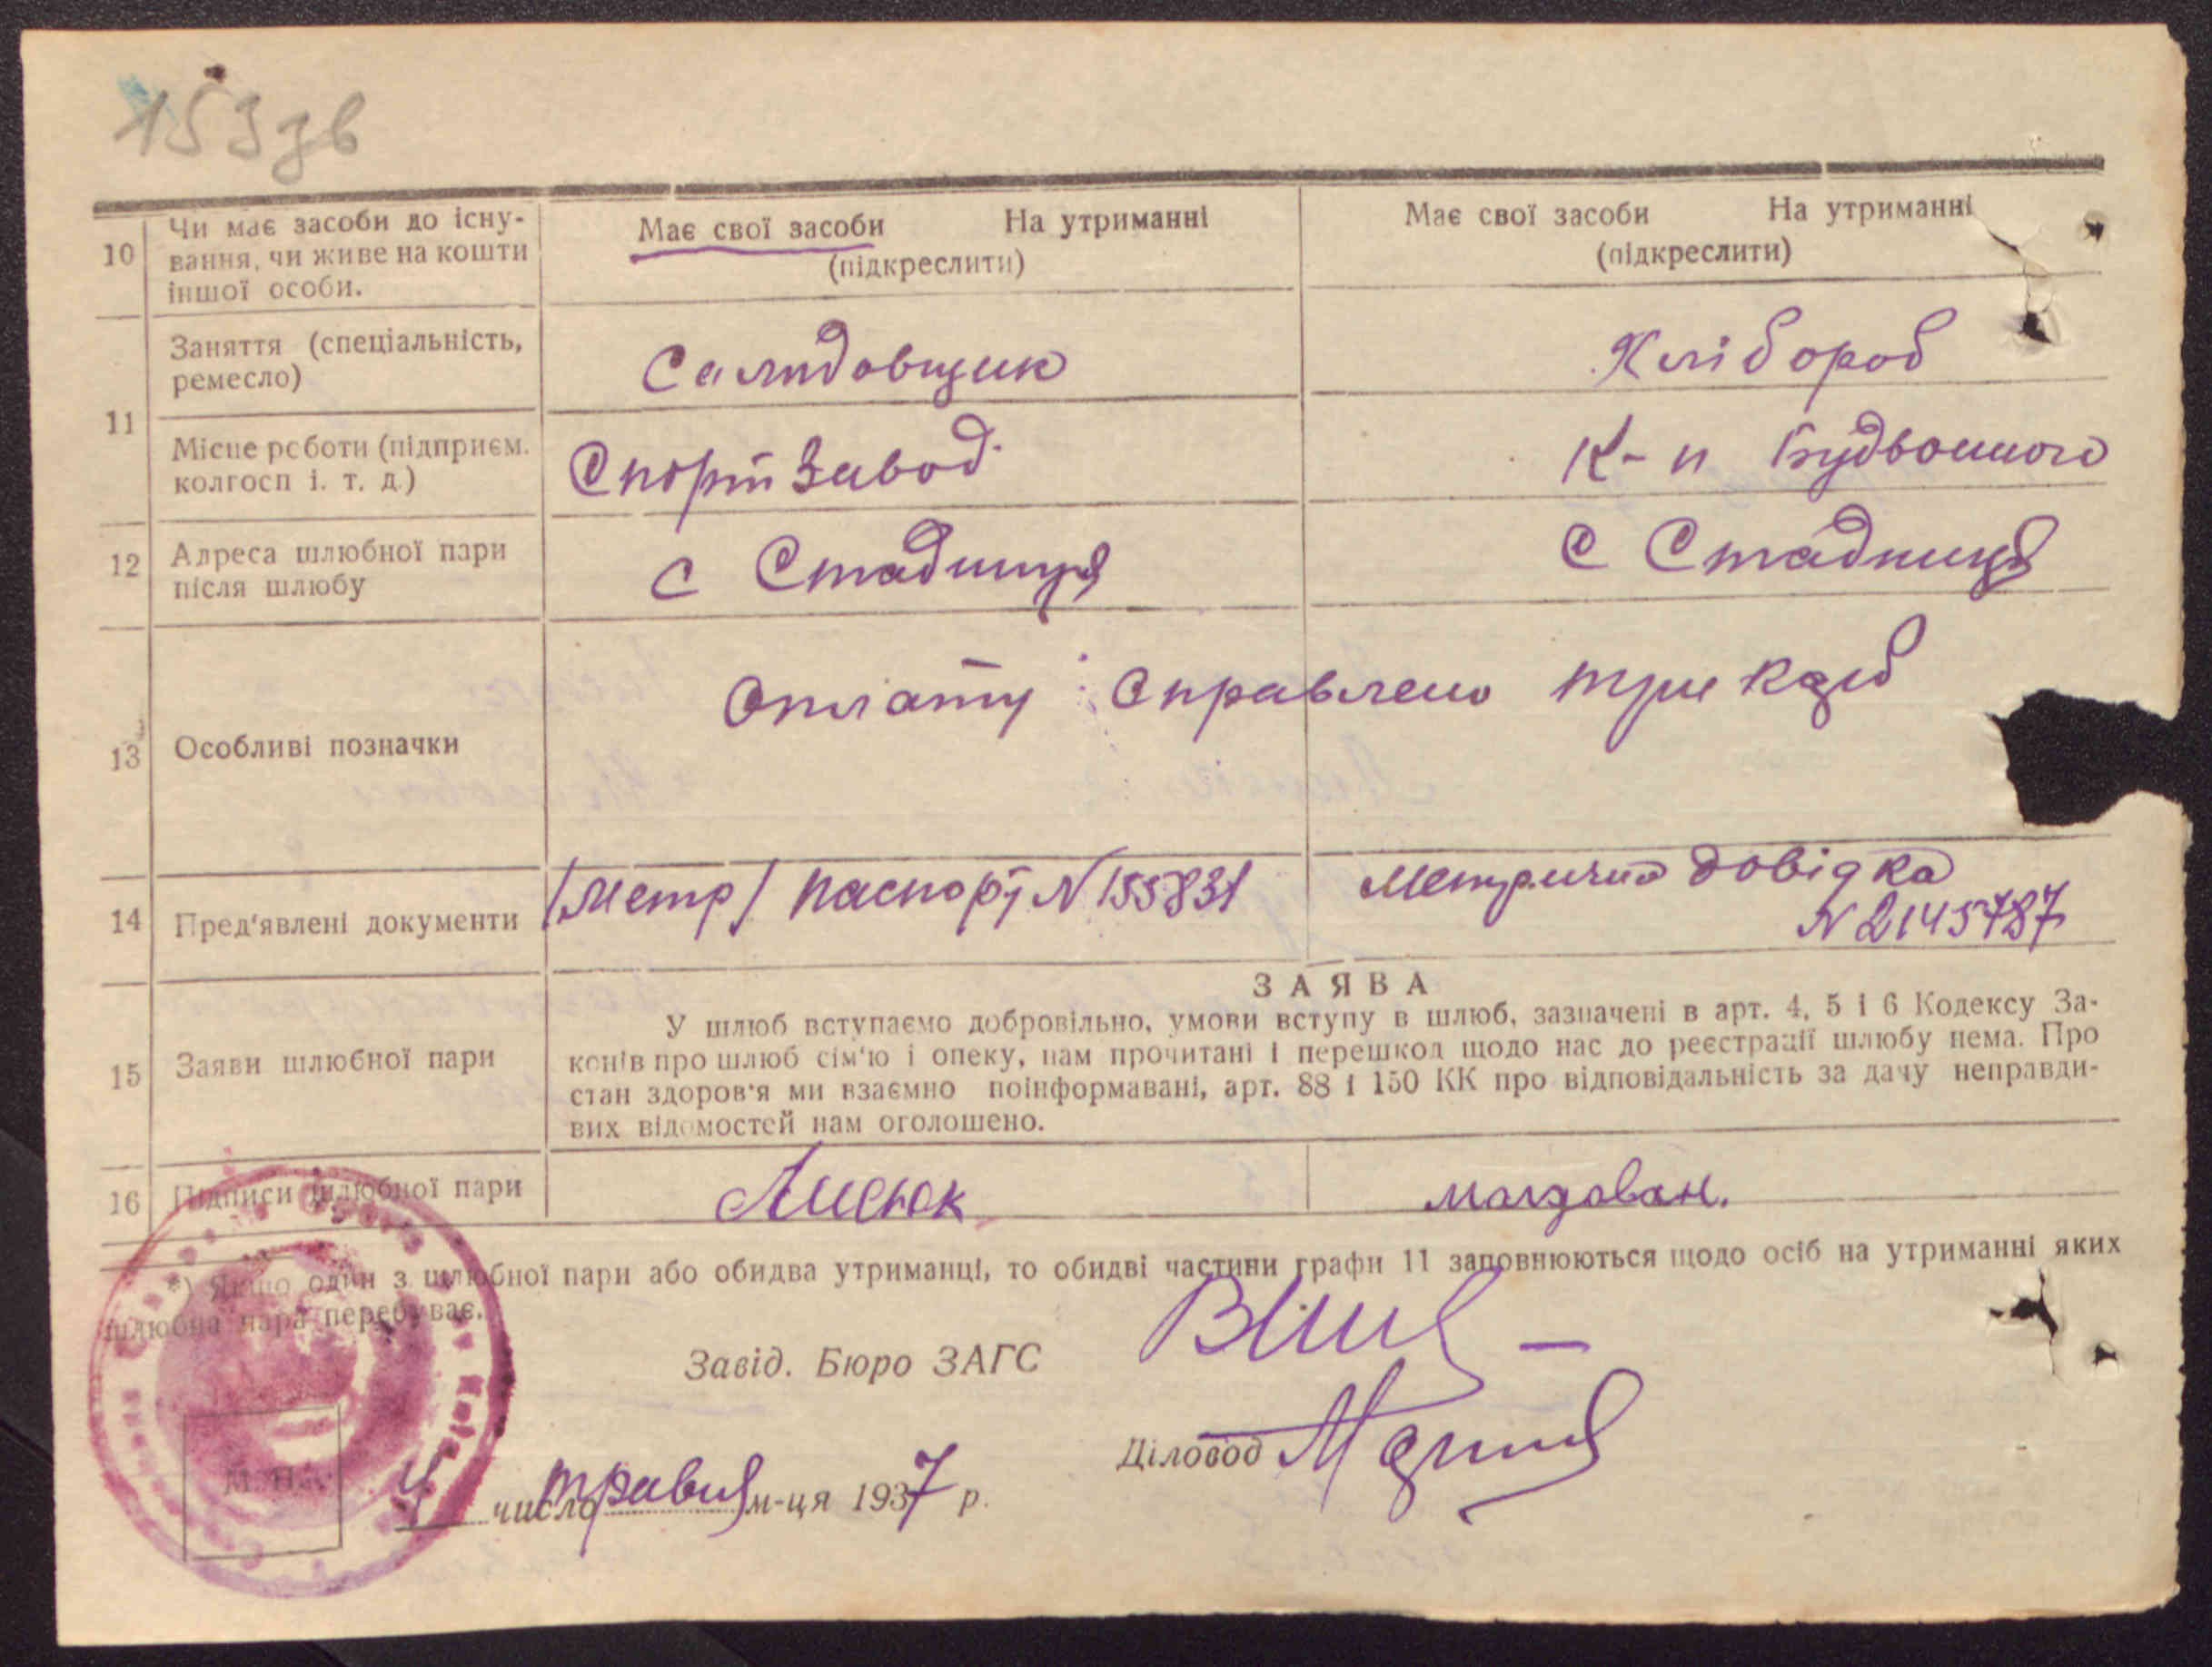 153зв
10 Чи має засоби до існу-
вання, чи живе на кошти
іншої особи.
Має свої засоби На утриманні
(підкреслити)
Має свої засоби На утриманні
(підкреслити)
11
Заняття (спеціальність,
ремесло)
Солидовщик
Хлібороб
Місце роботи (підприєм.
колгосп і. т. д.)
Спорт завод.
К-п
12 Адреса шлюбної пари
після шлюбу
с Стадниця
с Стадниця
13 Особливі позначки
Оплату справлено три карб
14 Пред'явлені документи
/Метр/ паспорт N 155831
Метрична довідка
N 2145787
15 Заяви шлюбної пари
ЗАЯВА
У шлюб вступаємо добровільно, умови вступу в шлюб, зазначені в арт. 4, 5 і 6 Кодексу За-
конів про шлюб сім'ю і опеку, нам прочитані і перешкод щодо нас до реєстрації шлюбу нема. Про
стан здоров'я ми взаємно поінформавані, арт. 88 і 150 КК про відповідальність за дачу неправди-
вих відомостей нам оголошено.
16 Підписи шлюбної пари
Лисюк
молдован.
*) Якщо один з шлюбної пари або обидва утриманці, то обидві частини графи 11 заповнюються щодо осіб на утриманні яких
шлюбна пара перебуває.
Завід. Бюро ЗАГС
Діловод
М. П.
4 число травня м-ця 1937 р.